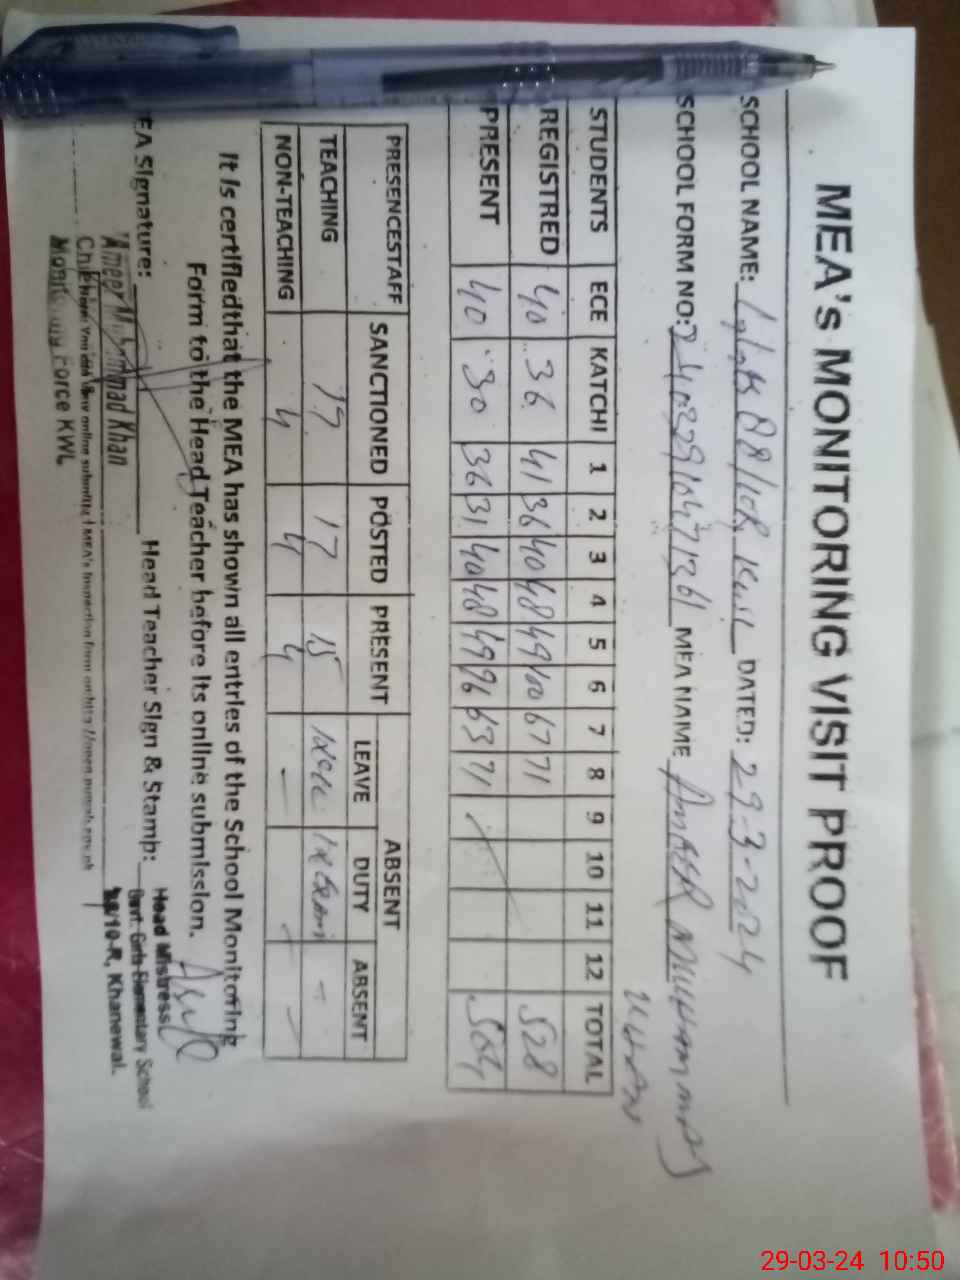 MEA's MONITORING VISIT PROOF
SCHOOL NAME: 88/10R KWL DATED: 29-3-2024
SCHOOL FORM NO: MEA NAME AMEER MUHAMMAD
KHAN
STUDENTS ECE KATCHI 1 2 3 4 5 6 7 8 9 10 11 12 TOTAL
REGISTRED 40 36 41 36 40 48 49 100 67 71 528
PRESENT 40 30 36 31 40 48 49 96 63 71 504
PRESENCESTAFF SANCTIONED POSTED PRESENT ABSENT
LEAVE DUTY ABSENT
TEACHING 17 17 15 -
NON-TEACHING 4 4 4 - - -
It is certifiedthat the MEA has shown all entries of the School Monitoring
Form to the Head Teacher before its online submission.
EA Signature: Head Teacher Sign & Stamp:
Head Mistress
Govt. Girls Elementary School
88/10-R, Khanewal.
Ameer Muhammad Khan
You can view online submitted MEA's Inspection form on http://open.punjab.gov.pk
Monitoring Force KWL
29-03-24 10:50